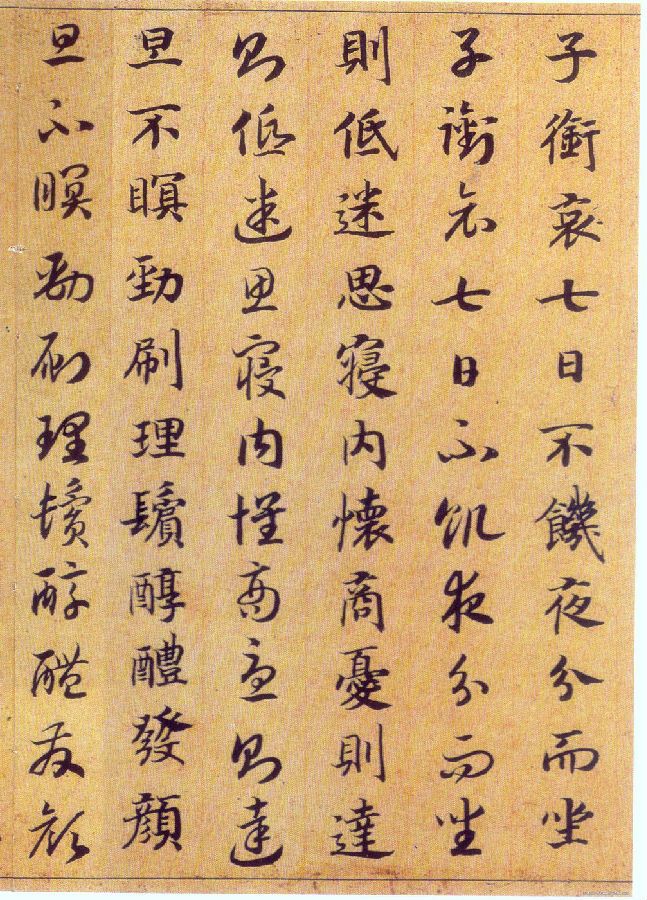 子銜哀七日不饑夜分而坐
子銜哀七日不飢夜分而坐
則低迷思寢內懷商憂則達
則低迷思寢內懷商憂則達
旦不瞑勁刷理鬢醇醴發顏
旦不瞑勁刷理鬢醇醴發顏